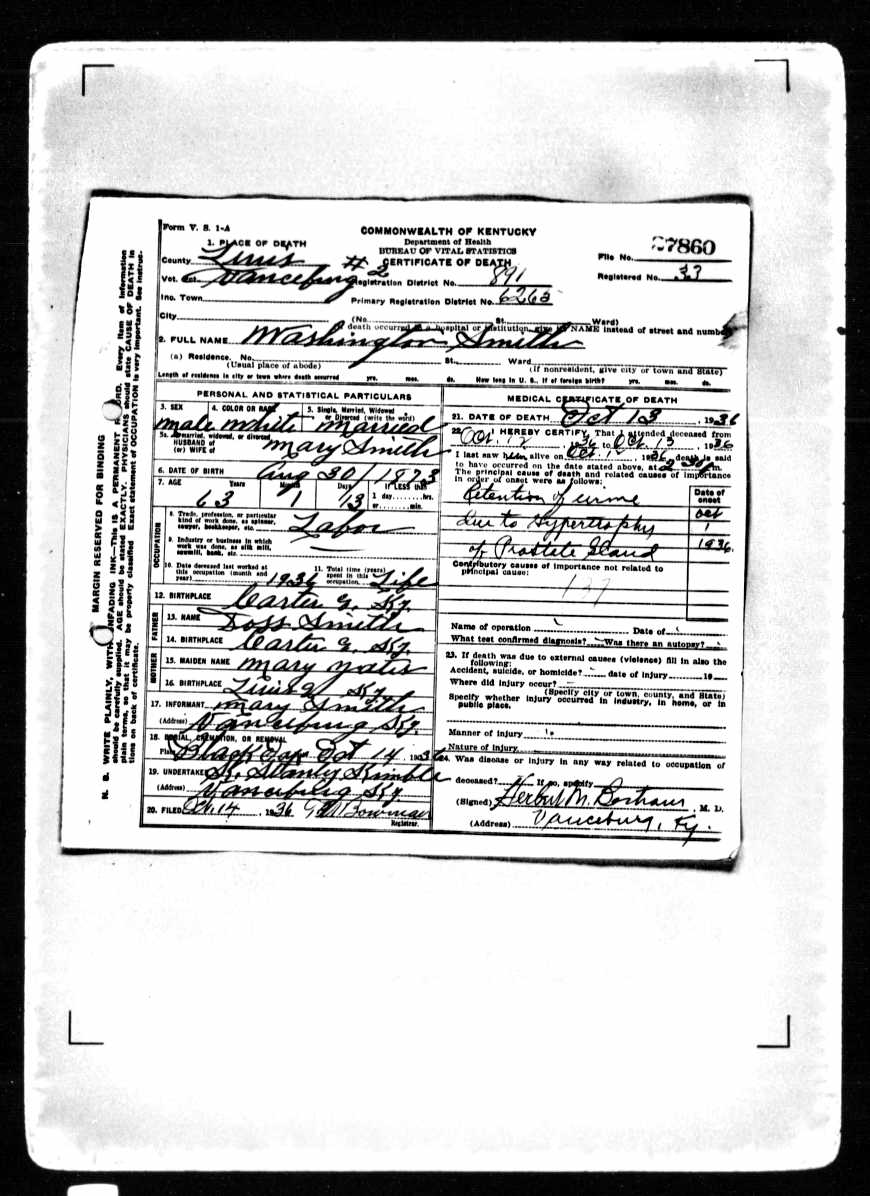 Form V. S. 1-A
COMMONWEALTH OF KENTUCKY
Department of Health
BUREAU OF VITAL STATISTICS
CERTIFICATE OF DEATH
File No. 27860
Registered No. 33
1. PLACE OF DEATH
County Lewis
Vot. Pct. Vanceburg #2
Registration District No. 891
Inc. Town
Primary Registration District No. 6265
City
(No. St. Ward)
(If death occurred in a hospital or institution, give its NAME instead of street and number)
2. FULL NAME Washington Smith
(a) Residence. No. St., Ward
(Usual place of abode) (If nonresident, give city or town and State)
Length of residence in city or town where death occurred yrs. mos. ds. How long in U. S., if of foreign birth? yrs. mos. ds.
PERSONAL AND STATISTICAL PARTICULARS
3. SEX 4. COLOR OR RACE 5. Single, Married, Widowed or Divorced (write the word)
male white married
5a. If married, widowed, or divorced
HUSBAND of
(or) WIFE of Mary Smith
6. DATE OF BIRTH Aug 30/1873
7. AGE Years Months Days If LESS than
63 1 13 1 day hrs.
or min.
OCCUPATION
8. Trade, profession, or particular
kind of work done, as spinner,
sawyer, bookkeeper, etc. Labor
9. Industry or business in which
work was done, as silk mill,
sawmill, bank, etc.
10. Date deceased last worked at
this occupation (month and
year) 1936
11. Total time (years)
spent in this
occupation Life
12. BIRTHPLACE Carter Co. Ky.
FATHER
13. NAME Doss Smith
14. BIRTHPLACE Carter Co. Ky.
MOTHER
15. MAIDEN NAME Mary Yates
16. BIRTHPLACE Lewis Co Ky
17. INFORMANT Mary Smith
(Address) Vanceburg Ky.
18. BURIAL, CREMATION, OR REMOVAL
Place Black Oak Oct 14, 1936
19. UNDERTAKER Stanly Kimble
(Address) Vanceburg Ky.
20. FILED Oct. 14, 1936 Bowman
Registrar.
MEDICAL CERTIFICATE OF DEATH
21. DATE OF DEATH Oct 13, 1936
22. I HEREBY CERTIFY, That I attended deceased from
Oct. 12, 1936 to Oct. 13, 1936
I last saw him alive on Oct. 12, 1936 death is said
to have occurred on the date stated above, at 2:30 m.
The principal cause of death and related causes of importance
in order of onset were as follows:
Date of onset
Retention of urine Oct
due to Hypertrophy 1
of Prostate Gland 1936.
Contributory causes of importance not related to
principal cause:
137
Name of operation Date of
What test confirmed diagnosis? Was there an autopsy?
23. If death was due to external causes (violence) fill in also the
following:
Accident, suicide, or homicide? date of injury 19
Where did injury occur?
(Specify city or town, county, and State)
Specify whether injury occurred in industry, in home, or in
public place.
Manner of injury
Nature of injury
24. Was disease or injury in any way related to occupation of
deceased? If so, specify
(Signed) Herbert M. M. D.
(Address) Vanceburg, Ky.
MARGIN RESERVED FOR BINDING
N. B. WRITE PLAINLY, WITH UNFADING INK—THIS IS A PERMANENT RECORD. Every item of information
should be carefully supplied. AGE should be stated EXACTLY. PHYSICIANS should state CAUSE OF DEATH in
plain terms, so that it may be properly classified. Exact statement of OCCUPATION is very important. See instruc-
tions on back of certificate.